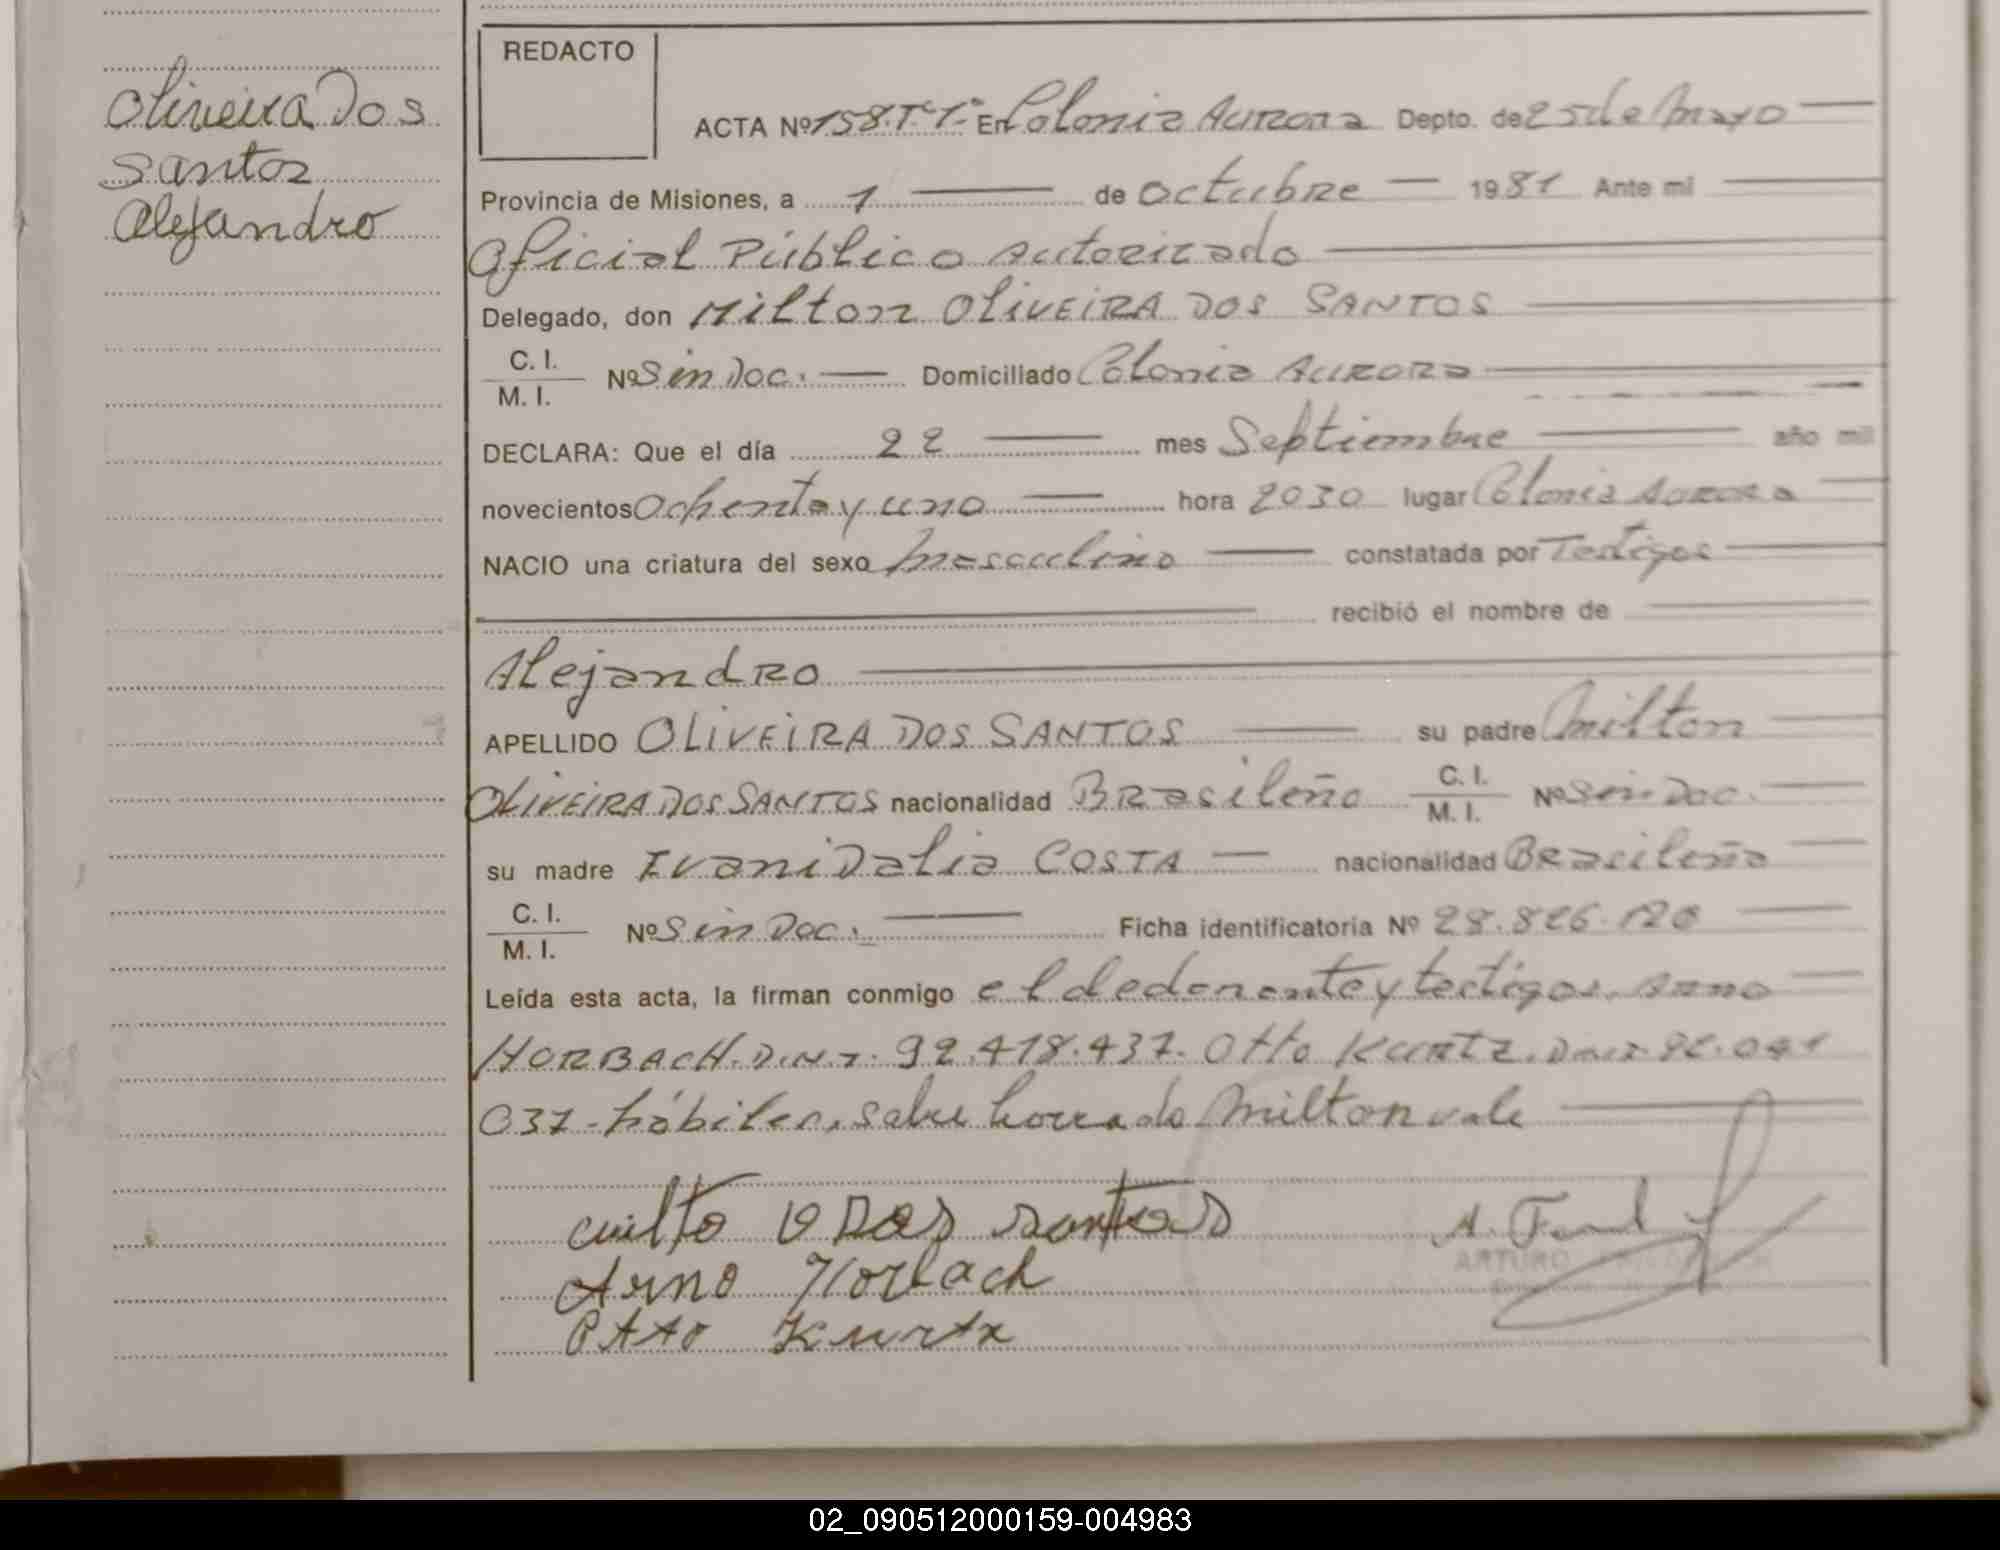 Oliveira Dos
Santos
Alejandro
REDACTO
ACTA Nº 158.Tº1º En Colonia Aurora Depto. de 25 de Mayo
Provincia de Misiones, a 1 de Octubre 1981 Ante mi
Oficial Público Autorizado
Delegado, don Milton OLIVEIRA DOS SANTOS
C. I.
M. I. Nº Sin Doc. Domiciliado Colonia Aurora
DECLARA: Que el día 22 mes Septiembre año mil
novecientos Ochenta y uno hora 2030 lugar Colonia Aurora
NACIO una criatura del sexo Masculino constatada por Testigos
recibió el nombre de
Alejandro
APELLIDO OLIVEIRA DOS SANTOS su padre Milton
OLIVEIRA DOS SANTOS nacionalidad Brasileño C. I.
M. I. Nº Sin Doc.
su madre Ivani Dalia COSTA nacionalidad Brasileña
C. I.
M. I. Nº Sin Doc. Ficha identificatoria Nº 28.826.120
Leída esta acta, la firman conmigo el dedonente y testigos. Arno
HORBACH. D.N.I. 92.418.437. Otto Kurtz. DNI 92.041
037- hábiles, sobre borrado Milton vale
milto O Dos santos
Arno Horbach
Otto Kurtz
ARTURO
02_090512000159-004983